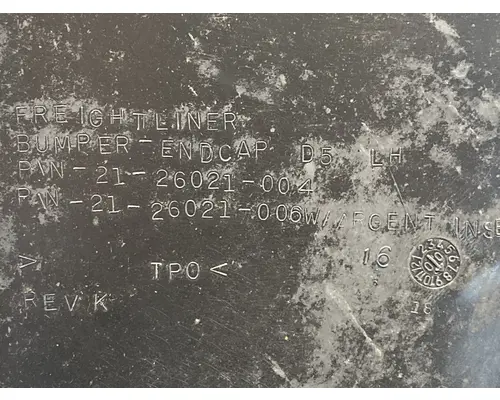 FREIGHTLINER
BUMPER-ENDCAP D5 LH
P/N-21-26021-004
P/N-21-26021-006W/
> TPO < 16
REV K 16